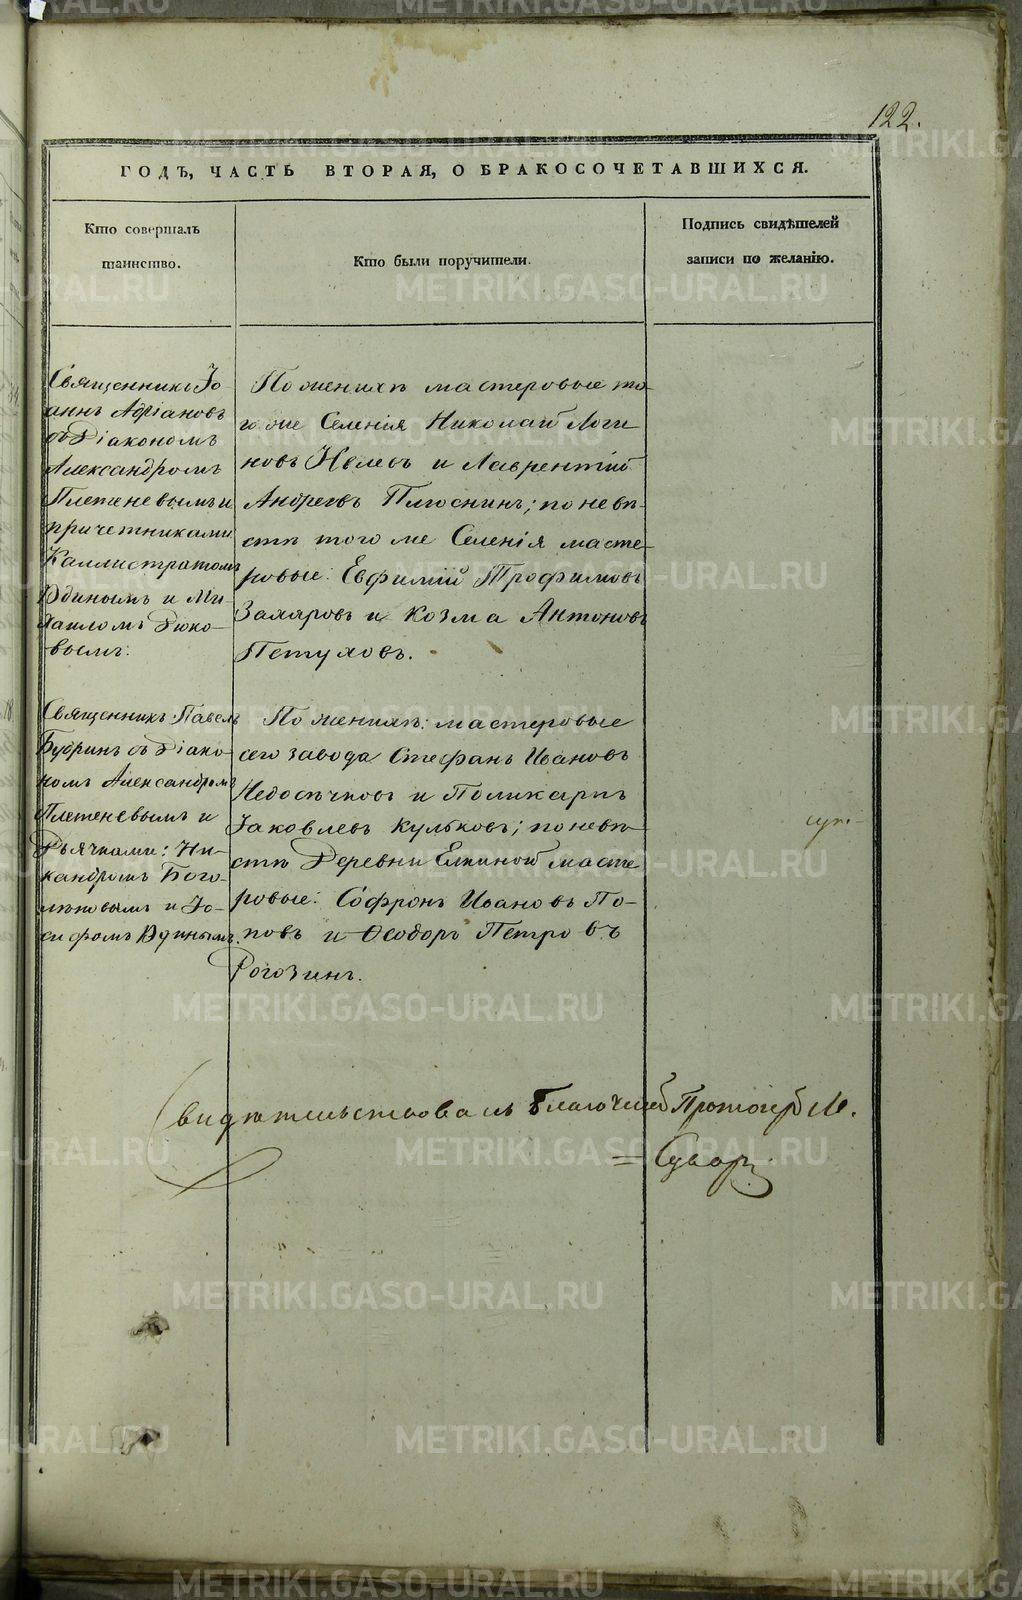 122.
ГОДЪ, ЧАСТЬ ВТОРАЯ, О БРАКОСОЧЕТАВШИХСЯ.
Кто совершалъ
таинство.
Кто были поручители.
Подпись свидѣтелей
записи по желанію.
Священникъ Іо-
аннъ Адріановъ
съ Діакономъ
Александромъ
Плетеневымъ и
причетниками
Каллистратомъ
Удинымъ и Ми-
хаиломъ Дюко-
вымъ.
По женихѣ мастеровые то-
го же Селенія Николай Логи
новъ Ивлевъ и Лаврентій
Андреевъ Плюснинъ; по невѣ-
стѣ того же Селенія масте-
ровые: Евфимій Трофимовъ
Захаровъ и Козма Антоновъ
Петуховъ.
Священникъ Павелъ
Бубринъ съ Діако-
номъ Александромъ
Плетеневымъ и
Дьячками: Ни-
кандромъ Бого-
лѣповымъ и Іо-
сифомъ Удинымъ.
По женихѣ: мастеровые
сего завода Стефанъ Ивановъ
Недосѣчковъ и Поликарпъ
Іаковлевъ Кульковъ; по невѣ-
стѣ Деревни Елкиной масте
ровые: Софронъ Ивановъ По-
повъ и Ѳеодоръ Петровъ
Рогозинъ.
Свидѣтельствовалъ Благочинный Протоіерей М.
METRIKI.GASO-URAL.RU